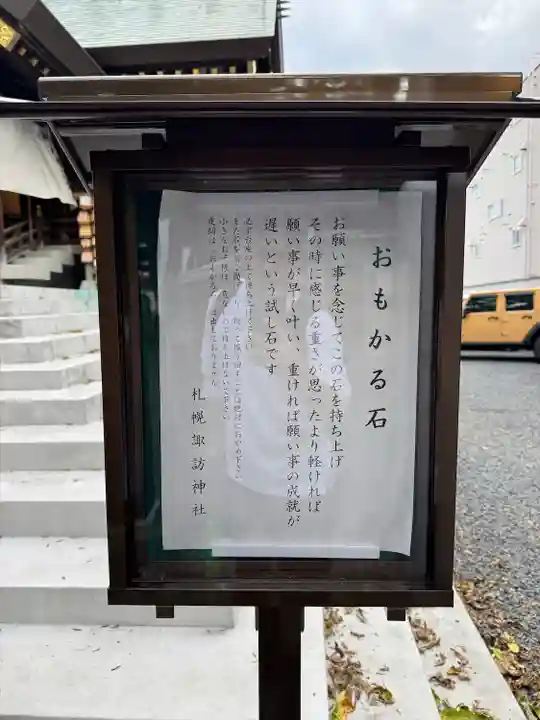 おもかる石
お願い事を念じてこの石を持ち上げ
その時に感じる重さが思ったより軽ければ
願い事が早く叶い、重ければ願い事の成就が
遅いという試し石です
必ず台座の上で持ち上げてください
札幌諏訪神社